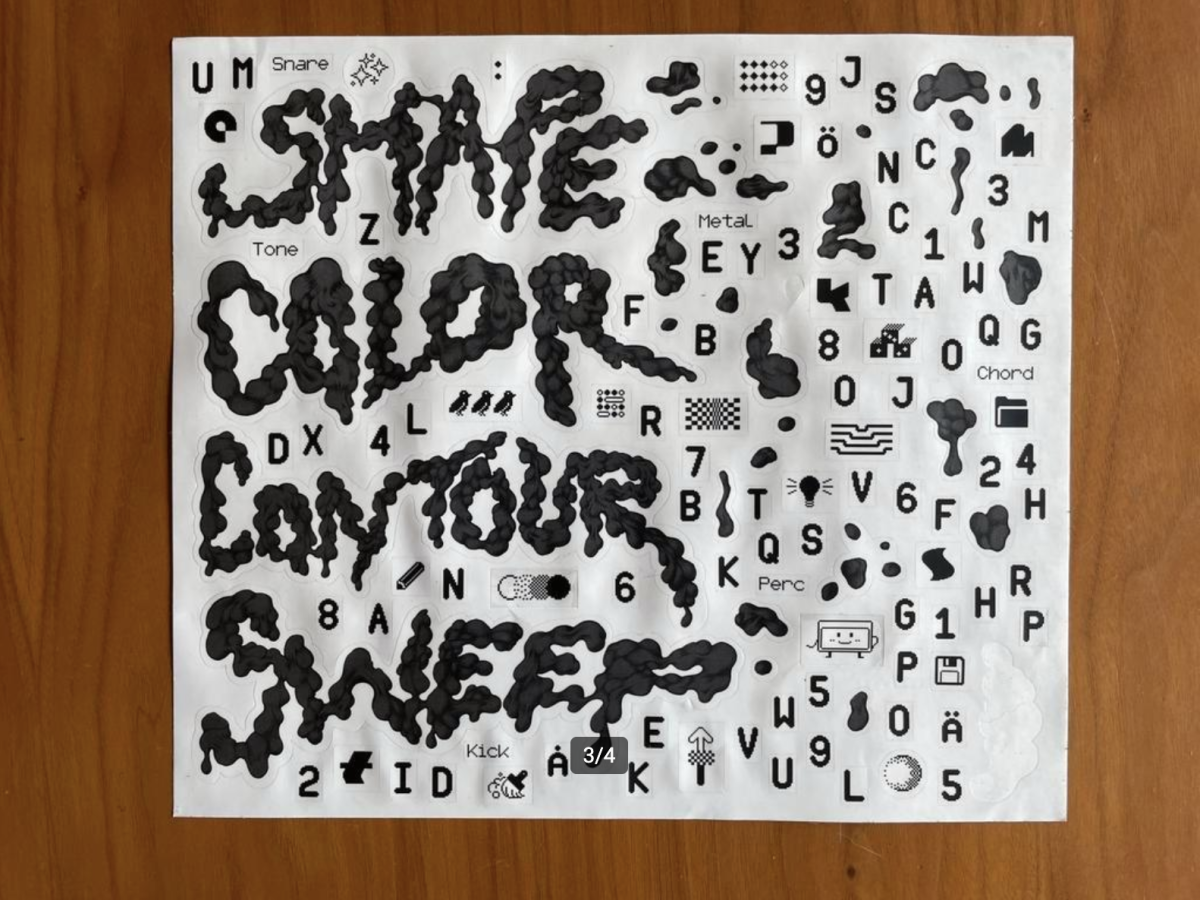 U M Snare : 9 J S
SHAPE
ö N C 3
Z Metal C 1 M
Tone E Y 3
COLOR
T A W
F B 8 O Q G
Chord
O J
L R
D X 4 7 2 4
CONTOUR
B T V 6 F H
Q S
K Perc R
N 6 H
8 A G 1 P
SWEEP
P
5
E W O Ä
Kick V 9
2 I D Å K U L 5
3/4